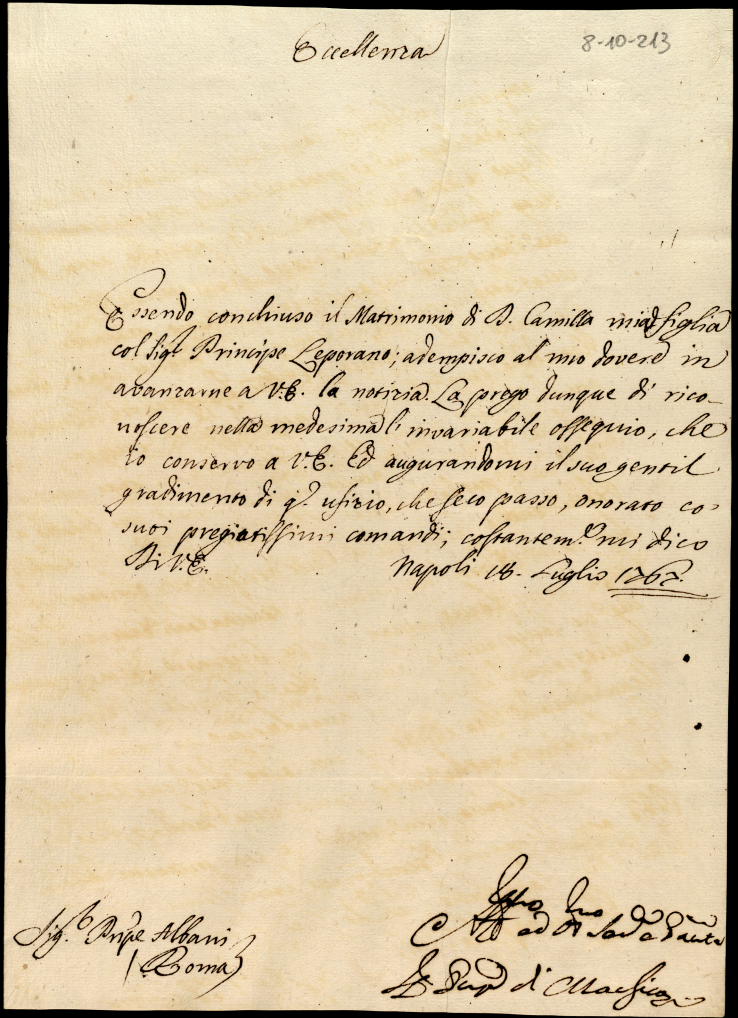 Eccellenza
8-10-213
Essendo conchiuso il Matrimonio di D. Camilla mia figlia
col Sigr. Principe Leporano; adempisco al mio dovere in
avanzarne a V.E. la notizia. La prego dunque di rico-
noscere nella medesima l'invariabile ossequio, che
io conservo a V.E. Ed augurandomi il suo gentil
gradimento di qto. ufizio, che seco passo, onorato co'
suoi pregiatissimi comandi; costantemte. mi dico
Di V.E. Napoli 18. Luglio 1767.
Sigr. Prnpe Albani
Roma
di